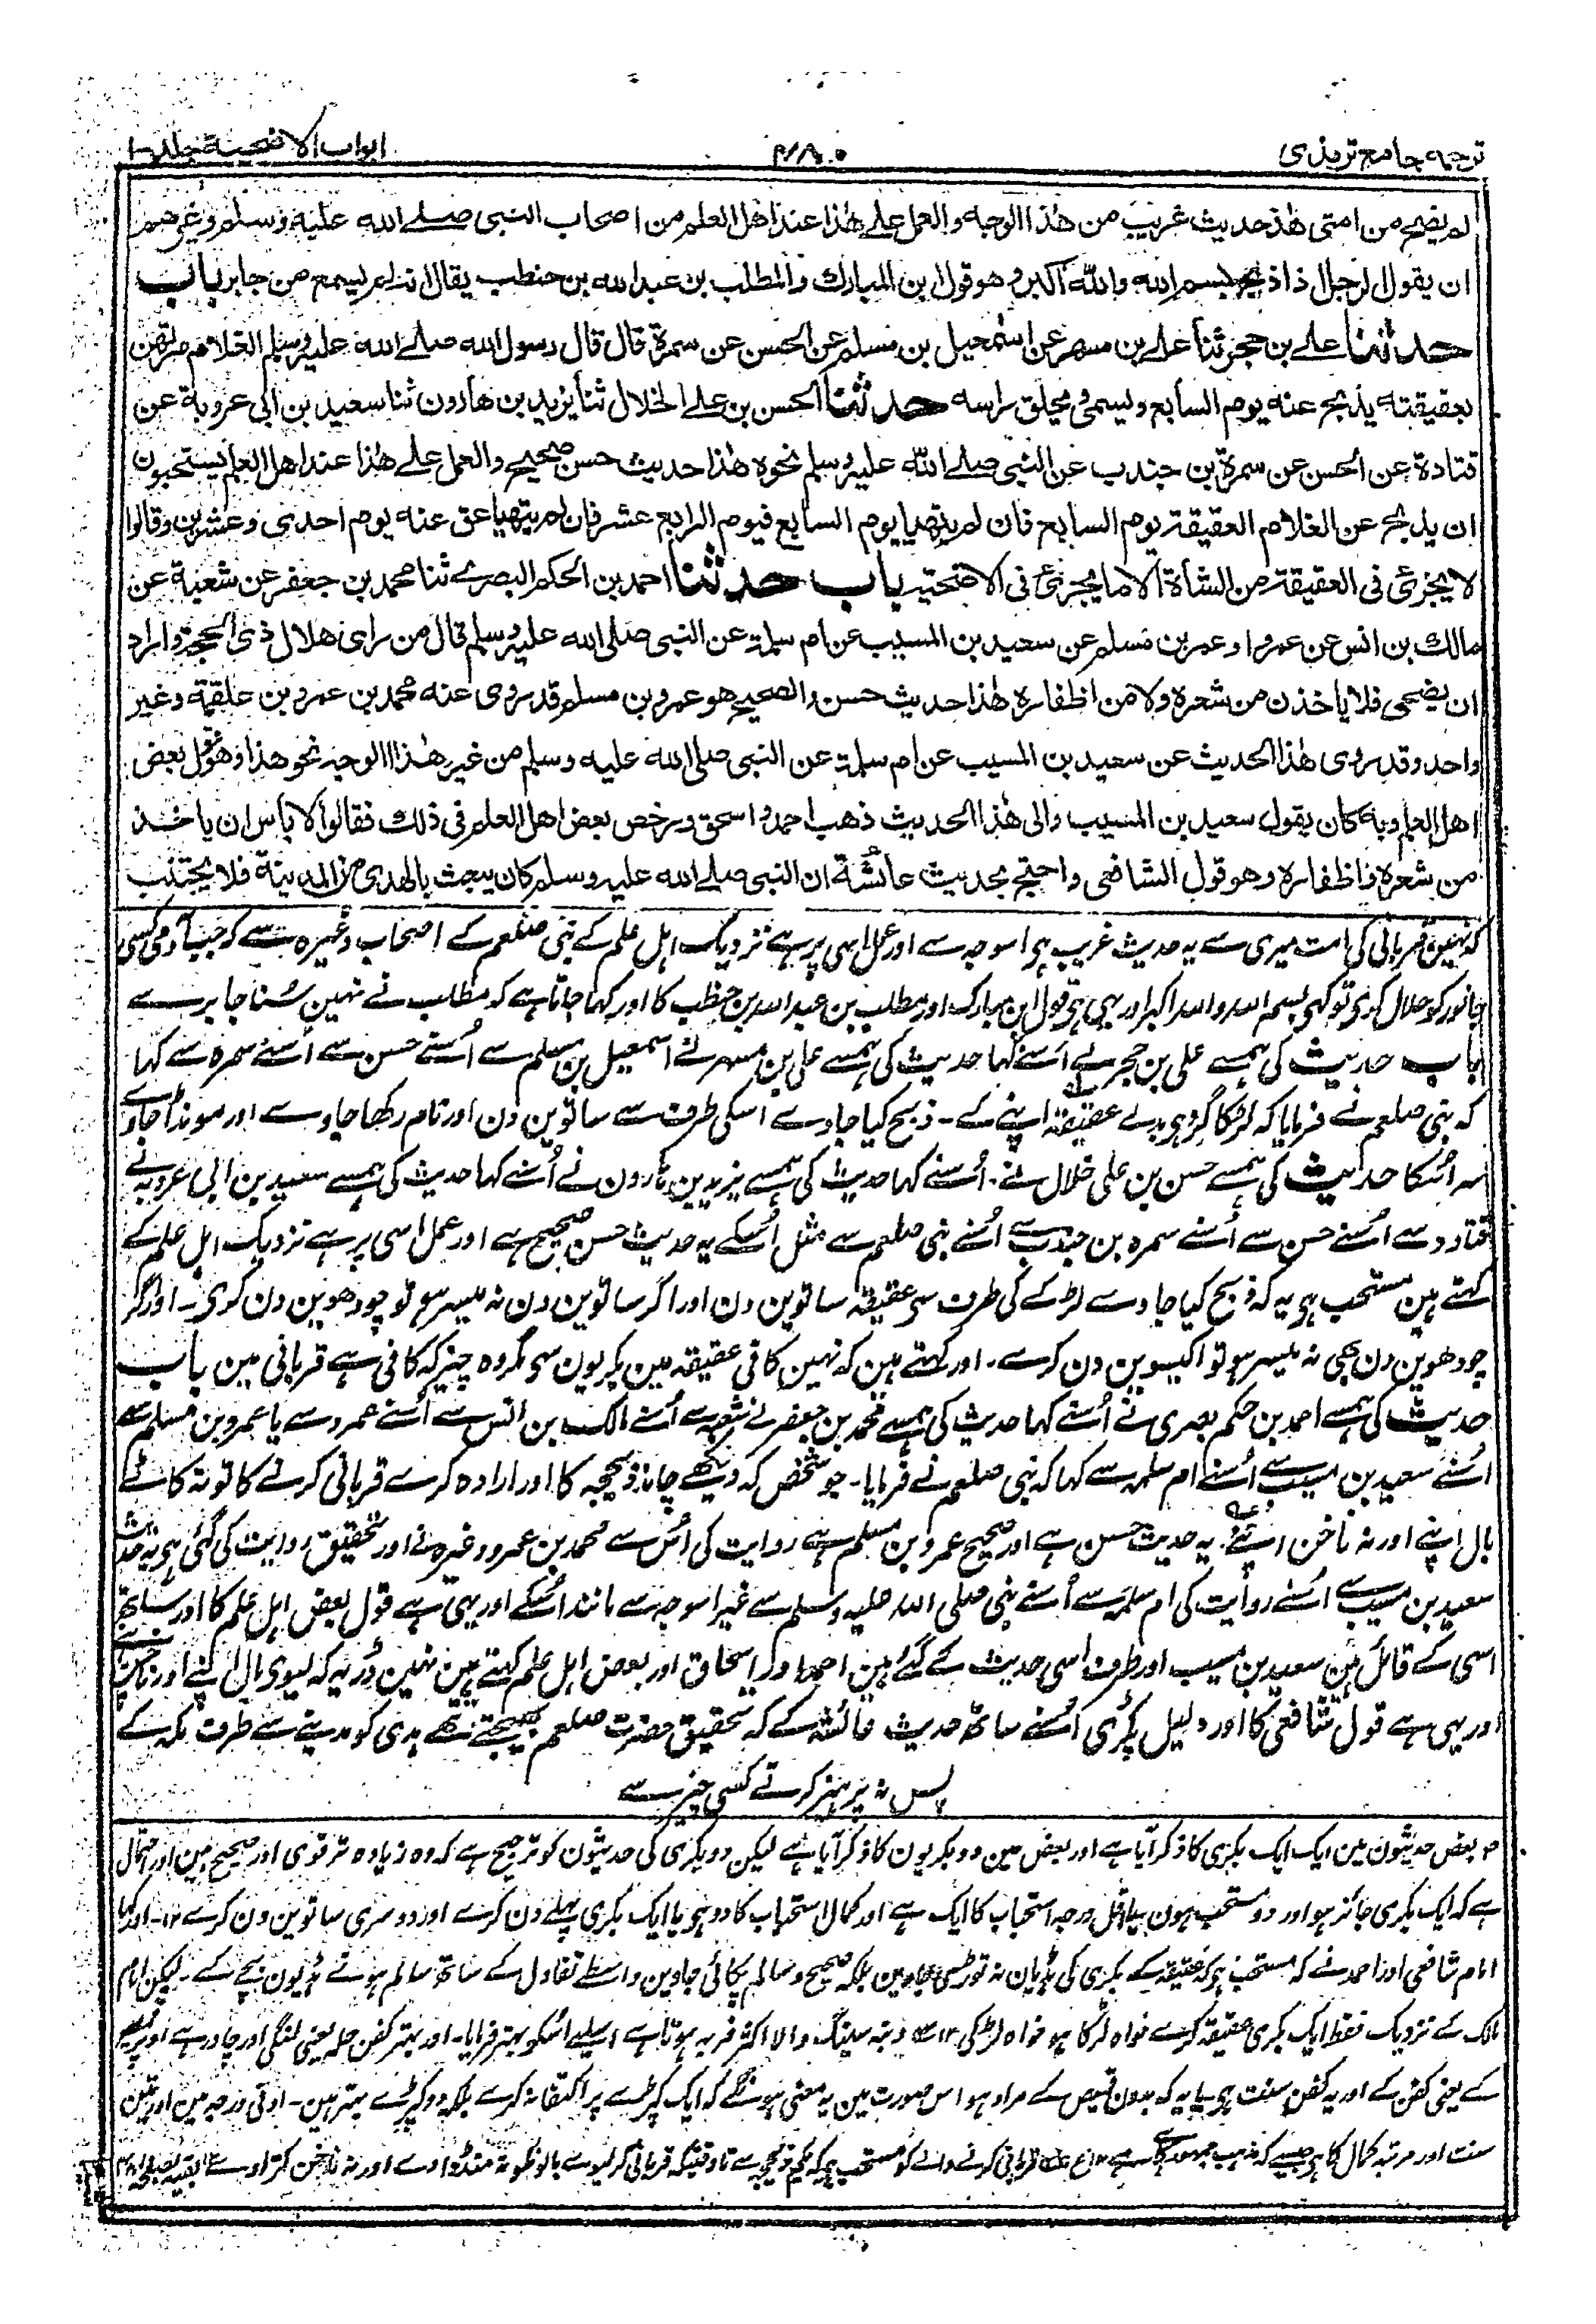 ترجمہ جامع ترمذی
۴۸۰
ابواب الاضحیة جلد ۱
لم یضح من امتی هٰذا حدیث غریب من هٰذا الوجه والعمل علے هٰذا عند اهل العلم من اصحاب النبی صلے الله علیه وسلم وغیرهم
ان یقول الرجل اذا ذبح بسم الله والله اکبر وهو قول ابن المبارك والمطلب بن عبد الله بن حنطب یقال انه لم یسمع من جابر باب
حدثنا علے بن حجر ثنا علے بن مسهر عن اسمٰعیل بن مسلم عن الحسن عن سمرة قال قال رسول الله صلے الله علیه وسلم الغلام مرتهن
بعقیقته یذبح عنه یوم السابع ویسمی ویحلق راسه حدثنا الحسن بن علے الخلال ثنا یزید بن هارون ثنا سعید بن ابی عروبة عن
قتادة عن الحسن عن سمرة بن جندب عن النبی صلے الله علیه وسلم نحوه هٰذا حدیث حسن صحیح والعمل علے هٰذا عند اهل العلم یستحبون
ان یذبح عن الغلام العقیقة یوم السابع فان لم یتهیا یوم السابع فیوم الرابع عشر فان لم یتهیا عق عنه یوم احدی وعشرین وقالوا
لا یجزئ فی العقیقة من الشاة الا ما یجزئ فی الاضحیة باب حدثنا احمد بن الحکم البصرے ثنا محمد بن جعفر عن شعبة عن
مالك بن انس عن عمرو او عمر بن مسلم عن سعید بن المسیب عن ام سلمة عن النبی صلی الله علیه وسلم قال من رای هلال ذی الحجة واراد
ان یضحی فلا یاخذن من شعره ولا من اظفاره هٰذا حدیث حسن والصحیح هو عمرو بن مسلم قد روی عنه محمد بن عمرو بن علقمة وغیر
واحد وقد روی هٰذا الحدیث عن سعید بن المسیب عن ام سلمة عن النبی صلی الله علیه وسلم من غیر هٰذا الوجه نحو هذا وهو قول بعض
اهل العلم وبه کان یقول سعید بن المسیب والی هٰذا الحدیث ذهب احمد واسحق ورخص بعض اهل العلم فی ذلك فقالوا لا باس ان یاخذ
من شعره واظفاره وهو قول الشافعی واحتج بحدیث عائشة ان النبی صلے الله علیه وسلم کان یبعث بالهدی من المدینة فلا یجتنب
کہ نہین قربانی کی امت میری سے یہ حدیث غریب ہی اسوجہ سے اور عمل اسی پر ہے نزدیک اہل علم کے نبی صلعم کے اصحاب وغیرہ سے کہ جب آدمی کسی
جانور کو حلال کری تو کہی بسم اللہ واللہ اکبر اور یہی ہی قول ابن مبارک اور مطلب بن عبد اللہ بن حنطب کا اور کہا جاتا ہے کہ مطلب نے نہین سُنا جابر سے
باب حدیث کی ہمسے علی بن حجر نے اُسنے کہا حدیث کی ہمسے علی بن مسہر نے اسمعیل بن مسلم سے اُسنے حسن سے اُسنے سمرہ سے کہا
کہ نبی صلعم نے فرمایا کہ لڑکا گرو ہی بدلے عقیقہ اپنے کے۔ ذبح کیا جاوے اسکی طرف سے ساتوین دن اور نام رکھا جاوے اور مونڈا جاوے
سر اُسکا حدیث کی ہمسے حسن بن علی خلال نے۔ اُسنے کہا حدیث کی ہمسے یزید بن ہارون نے اُسنے کہا حدیث کی ہمسے سعید بن ابی عروبہ نے
قتادہ سے اُسنے حسن سے اُسنے سمرہ بن جندب سے اُسنے نبی صلعم سے مثل اُسکے یہ حدیث حسن صحیح ہے اور عمل اسی پر ہے نزدیک اہل علم کے
کہتے ہین مستحب ہی یہ کہ ذبح کیا جاوے لڑکے کی طرف سی عقیقہ ساتوین دن اور اگر ساتوین دن نہ میسر ہو تو چودھوین دن کری۔ اور اگر
چودھوین دن بھی نہ میسر ہو تو اکیسوین دن کرے۔ اور کہتے ہین کہ نہین کافی عقیقہ مین بکریون سی مگر وہ چیز کہ کافی ہے قربانی مین باب
حدیث کی ہمسے احمد بن حکم بصری نے اُسنے کہا حدیث کی ہمسے محمد بن جعفر نے شعبہ سے اُسنے مالک بن انس سے اُسنے عمرو سے یا عمر بن مسلم سے
اُسنے سعید بن مسیب سے اُسنے ام سلمہ سے کہا کہ نبی صلعم نے فرمایا۔ جو شخص کہ دیکھے چاند ذیحجہ کا اور ارادہ کرے قربانی کرنے کا تو نہ کاٹے
بال اپنے اور نہ ناخن اپنے۔ یہ حدیث حسن ہے اور صحیح عمرو بن مسلم ہے روایت کی اُس سے محمد بن عمرو وغیرہ نے اور تحقیق روایت کی گئی ہی یہ حدیث
سعید بن مسیب سے اُسنے روایت کی ام سلمہ سے اُسنے نبی صلی اللہ علیہ وسلم سے غیر اسوجہ سے مانند اُسکے اور یہی ہے قول بعض اہل علم کا اور ساتھ
اسی کے قائل ہین سعید بن مسیب اور طرف اسی حدیث کے گئے ہین احمد اور اسحاق اور بعض اہل علم کہتے ہین نہین ڈر یہ کہ لیوی بال اپنے اور ناخن اپنے
اور یہی ہے قول شافعی کا اور دلیل پکڑی اُسنے ساتھ حدیث عائشہ کے کہ تحقیق حضرت صلعم بھیجتے تھے ہدی کو مدینے سے طرف مکہ کے
پس نہ پرہیز کرتے کسی چیز سے
بعض حدیثون مین ایک ایک بکری کا ذکر آیا ہے اور بعض مین دو دو بکریون کا ذکر آیا ہے لیکن دو بکری کی حدیثون کو ترجیح ہے کہ وہ زیادہ تر قوی اور صحیح ہین اور احتمال
ہے کہ ایک بکری جائز ہو اور دو مستحب ہون یا اقل درجہ استحباب کا ایک ہے اور کمال استحباب کا دو ہو یا ایک بکری پہلے دن کرے اور دوسری ساتوین دن کرے ۱۲۔ اور کہا
امام شافعی اور احمد نے کہ مستحب ہی کہ عقیقہ کے بکری کی ہڈیان نہ توڑی جاوین بلکہ صحیح وسالم پکائی جاوین واسطے تفاول کے ساتھ سالم ہونے ہڈیون بچے کے۔ لیکن امام
مالک کے نزدیک فقط ایک بکری عقیقہ کرے خواہ لڑکا ہو خواہ لڑکی ۱۲ دنبہ سینگ والا اکثر فربہ ہوتا ہے اسلیے اُسکو بہتر فرمایا۔ اور بہتر کفن حلہ یعنی لنگی اور چادر ہے اوپر
کے یعنی کفن کے اور یہ کفن سنت ہی یا یہ کہ بدون قمیص کے مراد ہو اس صورت مین یہ معنی ہونگے کہ ایک کپڑے پر اکتفا نہ کرے بلکہ دو کپڑے بہتر ہین۔ ادنی درجہ مین اور تین
سنت اور مرتبہ کمال کا ہی جیسے کہ مذہب جمہور کا ہے ۱۲ قربانی کرنے والے کو مستحب ہی کہ ذیحجہ سے تا وقتیکہ قربانی کر لیوے بالونکو نہ منڈواوے اور نہ ناخن کتراوے ۱۲ بقیہ بصفحہ ۴۸۱